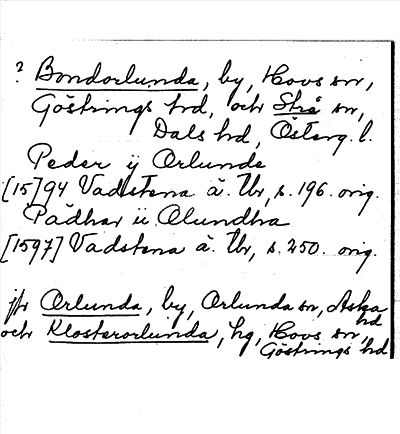 ? Bondorlunda, by, Hovs sn,
Göstrings hd, och Strå sn,
Dals hd, Österg. l.
Peder ij Orlunde
[15]94 Vadstena ä. Ur, s. 196. orig.
Pädhar ii Olundha
[1597] Vadstena ä. Ur, s. 250. orig.
jfr Orlunda, by, Orlunda sn, Aska hd
och Klosterorlunda, hg, Hovs sn,
Göstrings hd